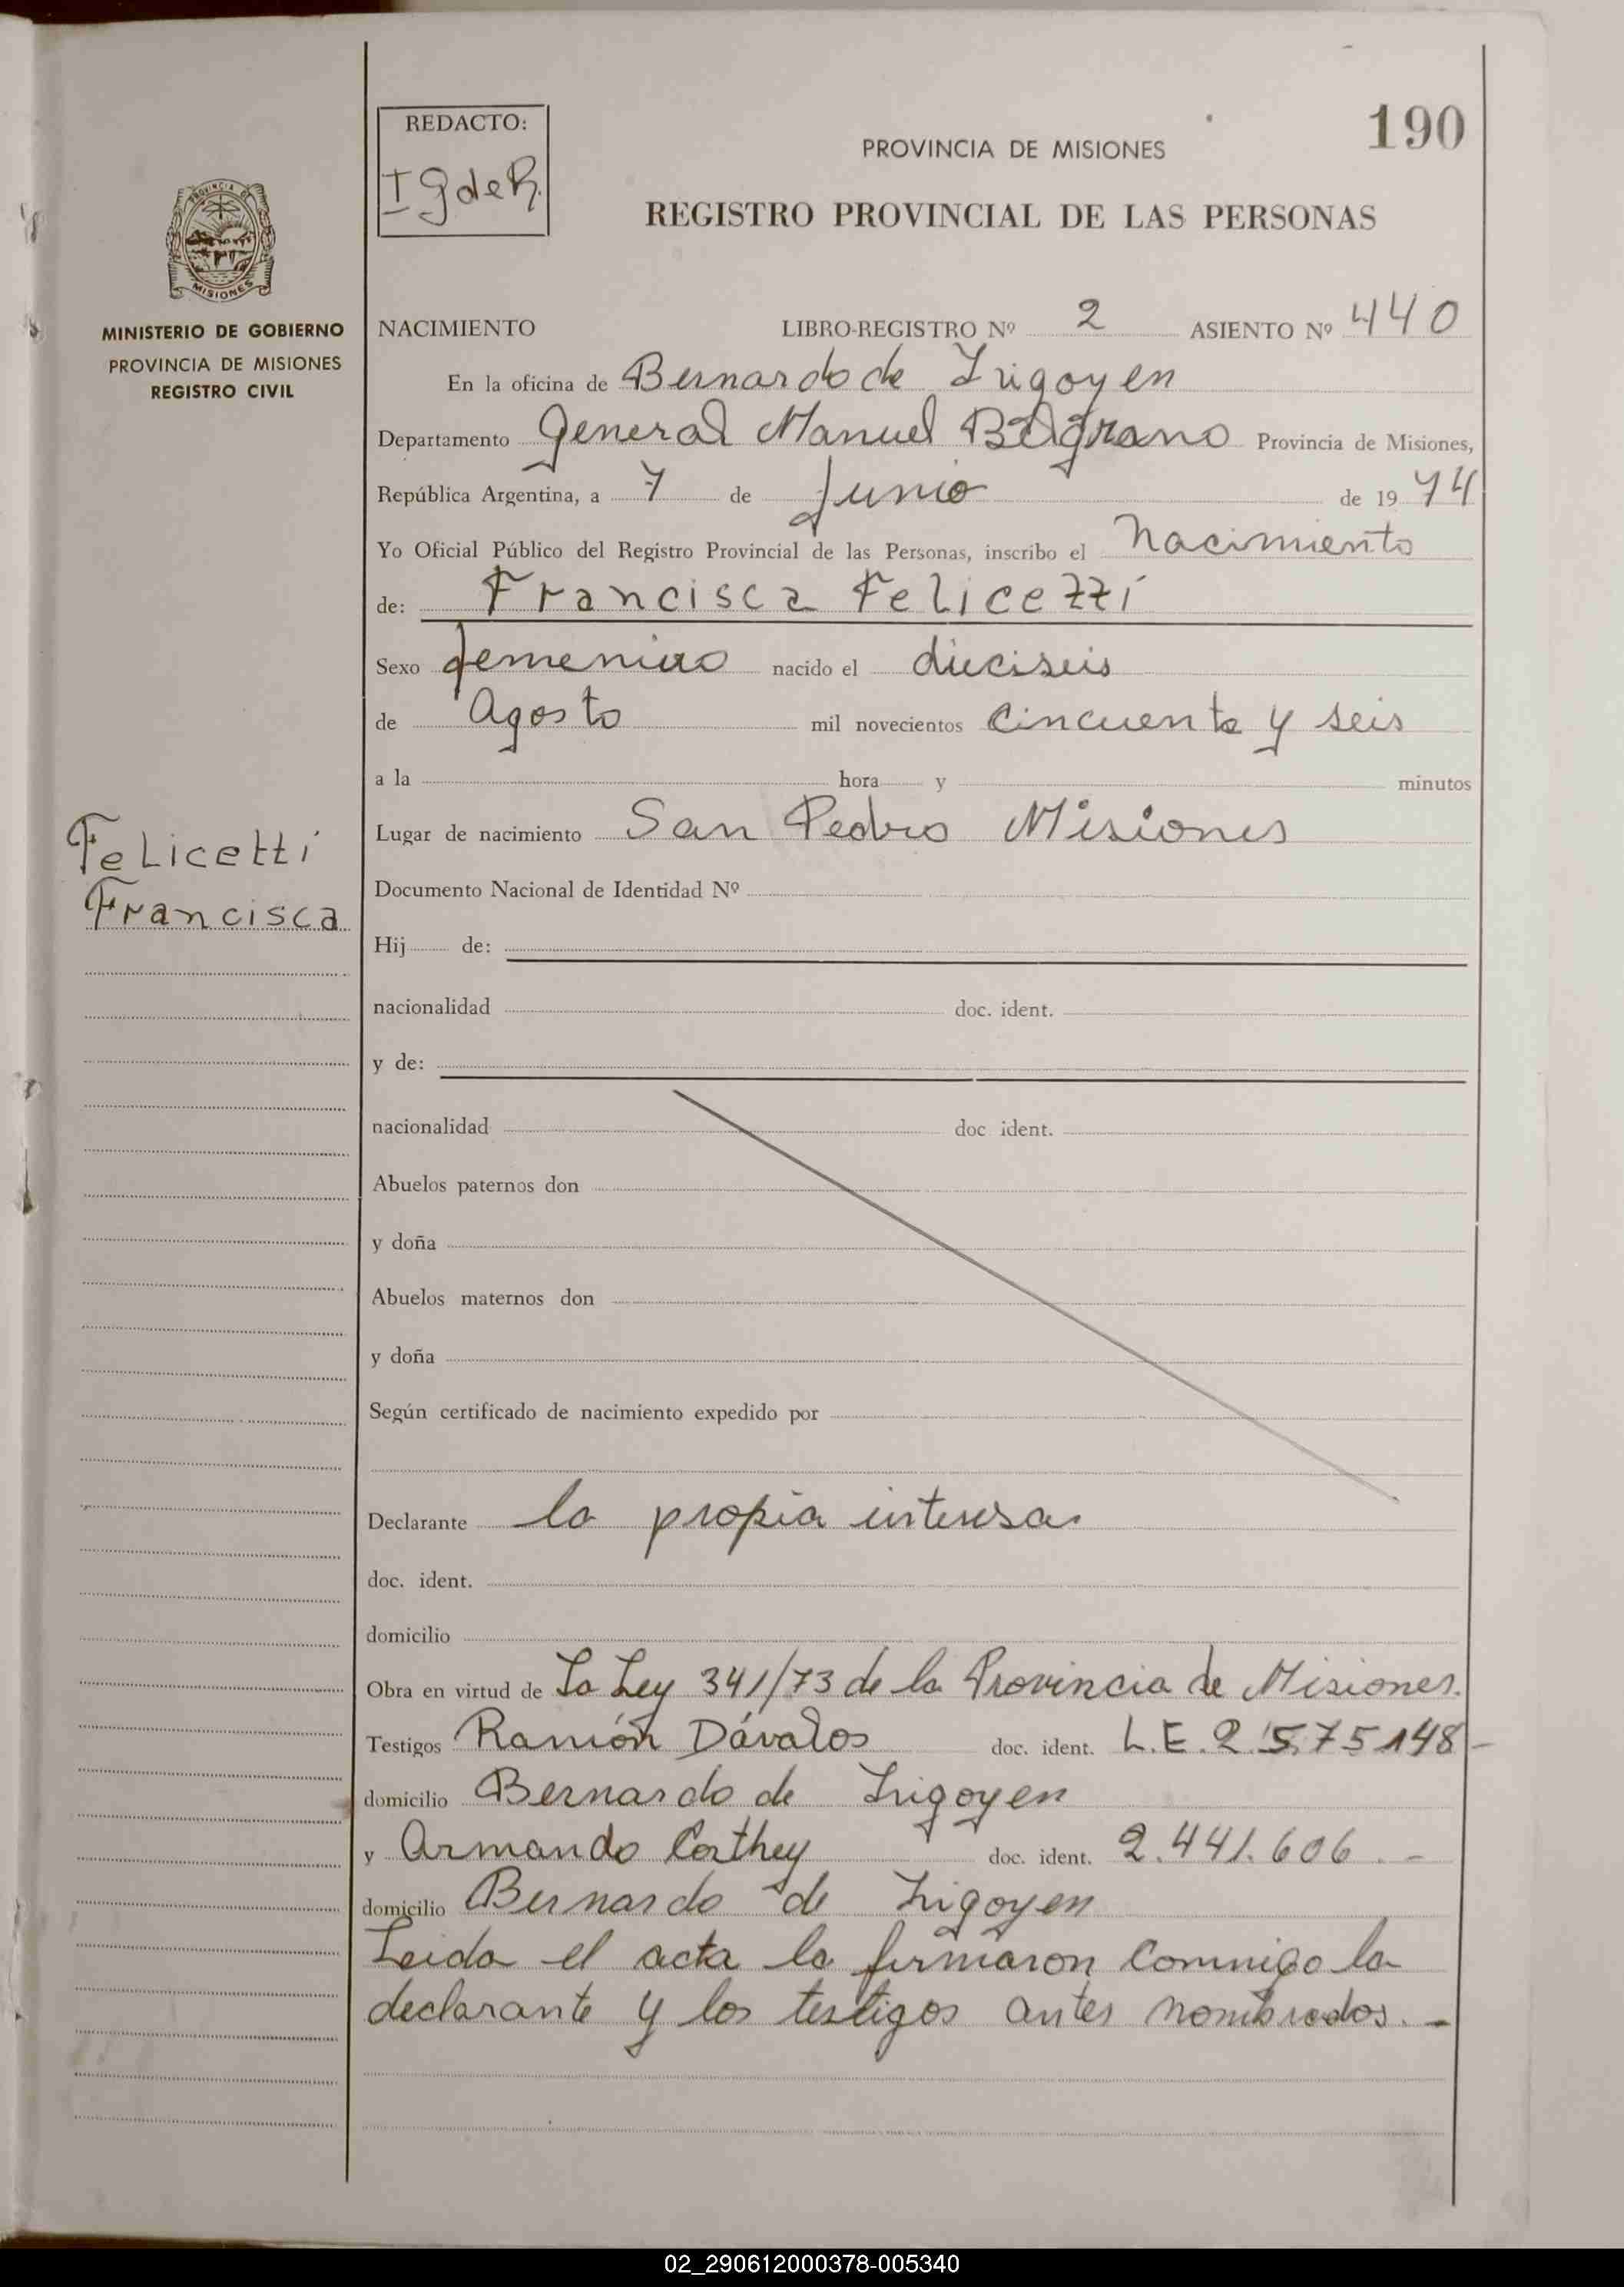 190
REDACTO:
I G de R.
PROVINCIA DE MISIONES
REGISTRO PROVINCIAL DE LAS PERSONAS
PROVINCIA DE
MISIONES
MINISTERIO DE GOBIERNO
PROVINCIA DE MISIONES
REGISTRO CIVIL
NACIMIENTO LIBRO-REGISTRO Nº 2 ASIENTO Nº 440
En la oficina de Bernardo de Irigoyen
Departamento General Manuel Belgrano Provincia de Misiones,
República Argentina, a 7 de Junio de 19 74
Yo Oficial Público del Registro Provincial de las Personas, inscribo el Nacimiento
de: Francisca Felicezzi
Sexo femenino nacido el dieciseis
de Agosto mil novecientos cincuenta y seis
a la hora y minutos
Lugar de nacimiento San Pedro Misiones
Felicetti
Francisca
Documento Nacional de Identidad Nº
Hij de:
nacionalidad doc. ident.
y de:
nacionalidad doc ident.
Abuelos paternos don
y doña
Abuelos maternos don
y doña
Según certificado de nacimiento expedido por
Declarante la propia interesa
doc. ident.
domicilio
Obra en virtud de La Ley 341/73 de la Provincia de Misiones.
Testigos Ramón Dávalos doc. ident. L.E. 2.575148-
domicilio Bernardo de Irigoyen
y Armando Corthey doc. ident. 2.441.606.-
domicilio Bernardo de Irigoyen
Leida el acta la firmaron conmigo la
declarante y los testigos antes nombrados.-
02_290612000378-005340